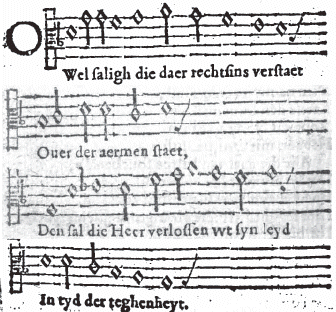 O
Wel saligh die daer rechtsins verstaet
Ouer der aermen staet,
Den sal die Heer verlossen wt syn leyd
In tyd der teghenheyt.